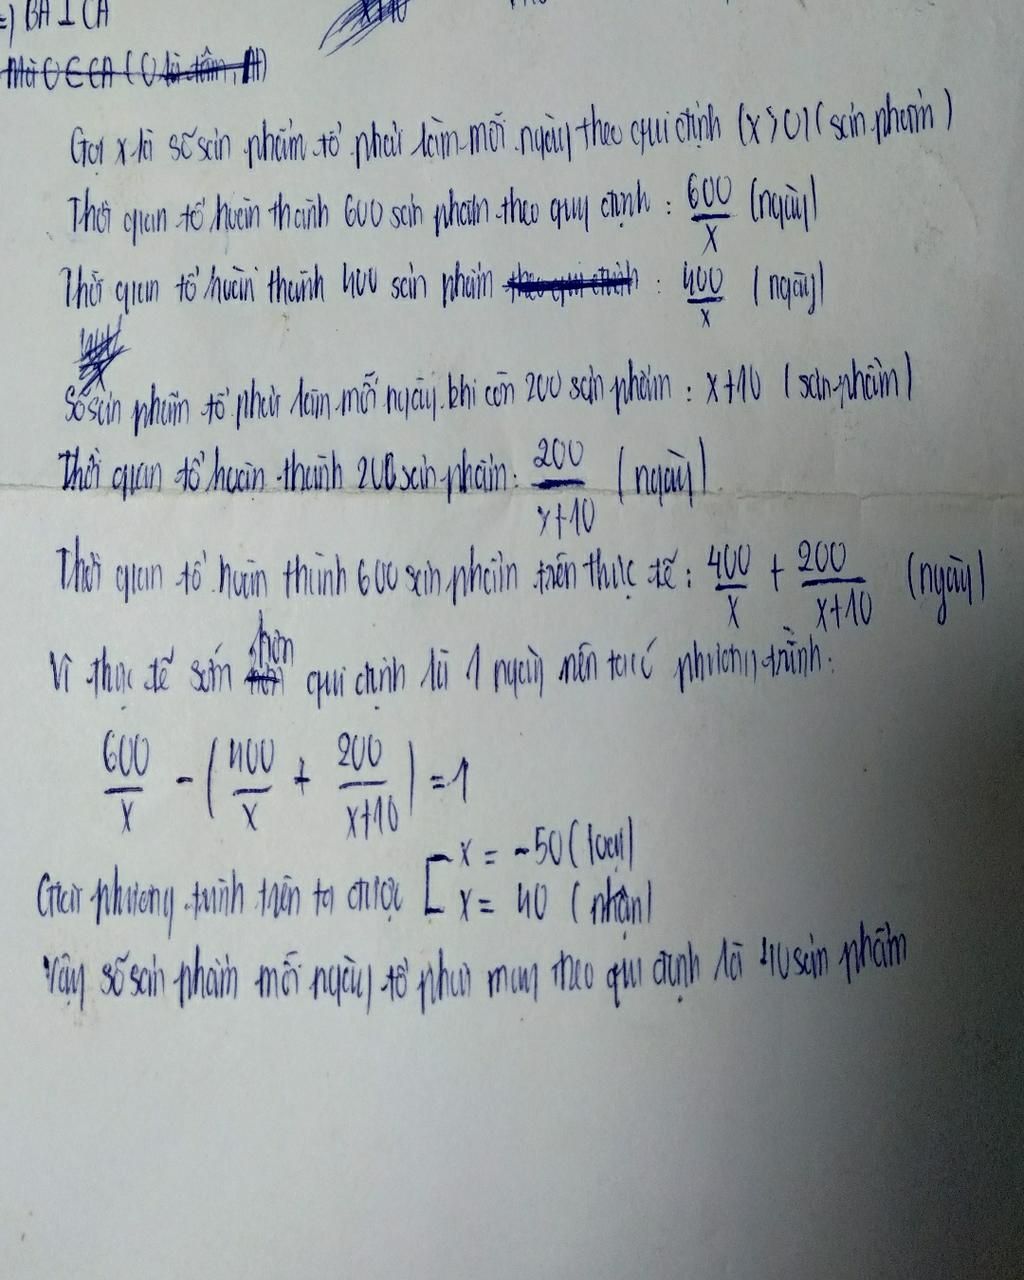 =) BA ⊥ CA
Mà O ∈ CA ( O là tâm, A)
x+10
Gọi x là số sản phẩm tổ phải làm mỗi ngày theo qui định (x > 0) ( sản phẩm )
Thời gian tổ hoàn thành 600 sản phẩm theo quy định : 600/x (ngày)
Thời gian tổ hoàn thành 400 sản phẩm theo qui định : 400/x ( ngày)
Số sản phẩm tổ phải làm mỗi ngày khi còn 200 sản phẩm : x+10 ( sản phẩm )
Thời gian tổ hoàn thành 200 sản phẩm : 200/x+10 ( ngày)
Thời gian tổ hoàn thành 600 sản phẩm trên thực tế : 400/x + 200/x+10 (ngày)
Vì thực tế sớm hơn qui định là 1 ngày nên ta có phương trình :
600/x - ( 400/x + 200/x+10 ) = 1
Giải phương trình trên ta được [ x = -50 ( loại)
x = 40 ( nhận)
Vậy số sản phẩm mỗi ngày tổ phải may theo qui định là 40 sản phẩm